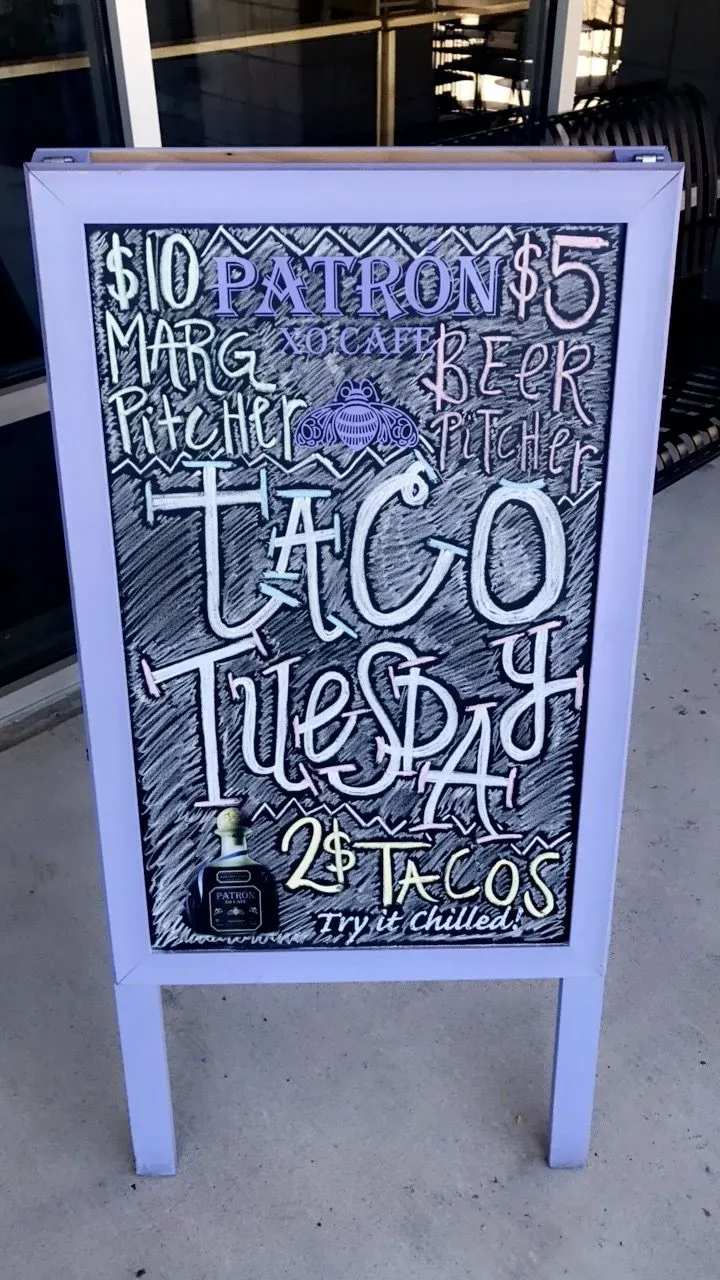 $10 PATRÓN $5
XO CAFE
MARG
PitcHer
BEer
PiTcHer
TACO
TuesDAy
2$ TACOS
PATRÓN
XO CAFE
Try it Chilled!